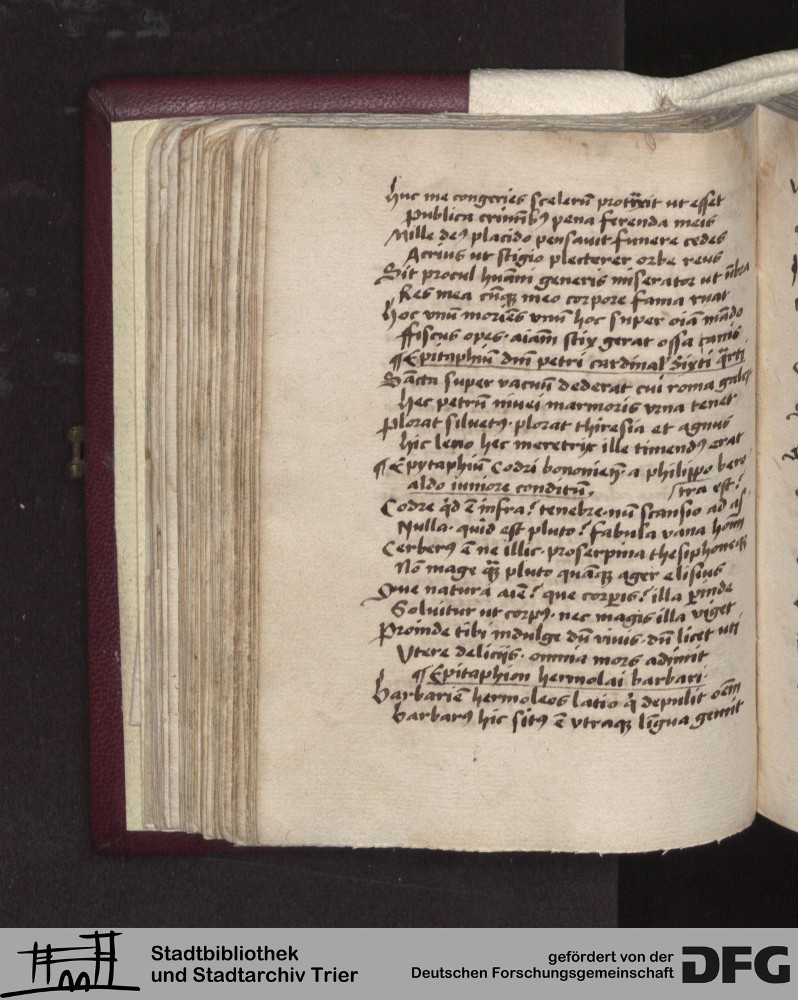 Huc me congeries scelerū protraxit ut esset
Publica criminib⁹ pena ferenda meis
Mille de⁹ placido pensauit funere cedes
Acrius ut stigio plecterer orbe reus
Sit procul humāi generis miserator ut ūbra
Res mea cūq̨ meo corpore fama ruat
Hoc unū moriēs unū hoc super oīa mādo
ffiscus opes· aīam stix gerat ossa canis
¶ Epitaphiū dnī petri cardinal Sixti q̄rti
Sācta super vacuū dederat cui roma gale
Hec petrū niuei marmoris vrna tenet
Plorat siluet⁹· plorat thiresia et agnus
Hic leno hec meretrix ille timend⁹ erat
¶ Epytaphiū Codri bononieñ· a philippo bero
aldo iuniore conditū, /tra est?
Codre q̇d ē infra? tenebre· nū scansio ad as
Nulla· quid est pluto? fabula vana hom̄
Cerber⁹ ē ne illic· proserpina thesiphoneq̨
Nō mage q̄ȝ pluto quāq̨ ager elisius
Que natura aīe? que corpis? illa pinde
Soluitur ut corp⁹· nec magis illa viget
Proinde tibi indulge dū viuis· dū licet uti
Vtere delicijs· omnia mors adimit
¶ Epitaphion hermolai barbari·
Barbariē hermoleos latio q̇ depulit oēm
Barbar⁹ hic sit⁹ ē vtraq̨ līgua gemit
Stadtbibliothek
und Stadtarchiv Trier
gefördert von der
Deutschen Forschungsgemeinschaft
DFG